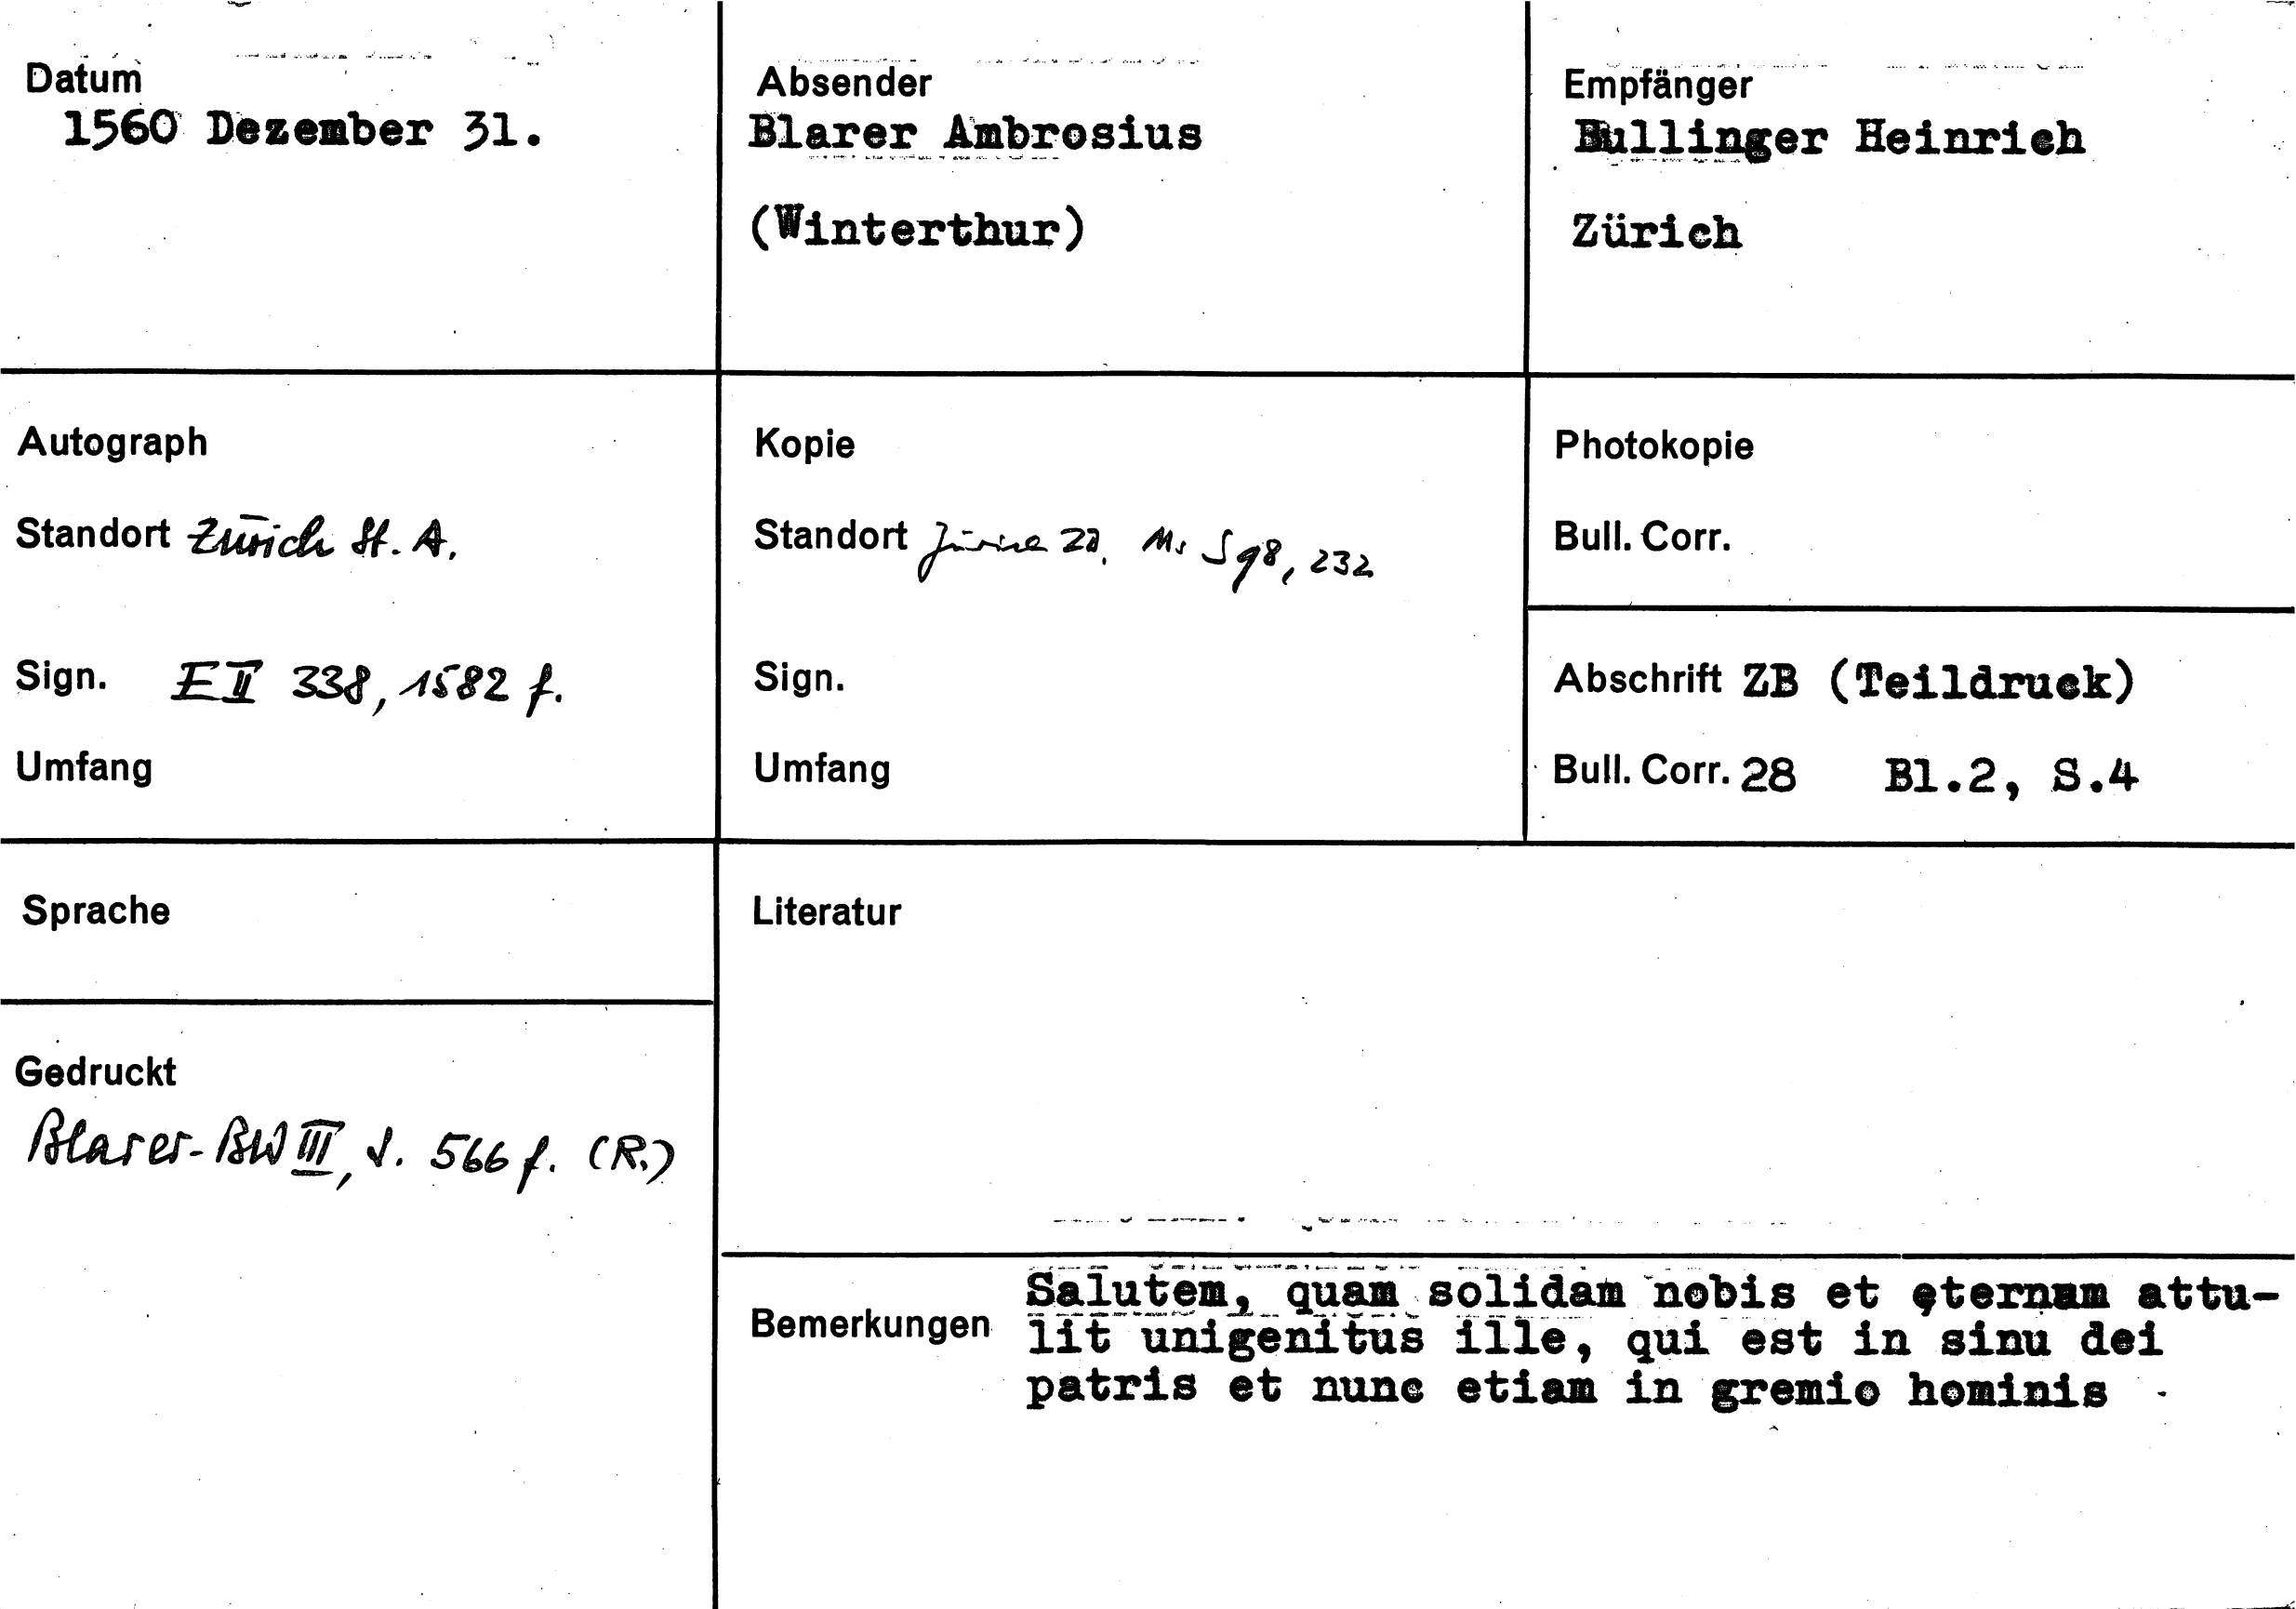 Datum
1560 Dezember 31.
Absender
Blarer Ambrosius
(Winterthur)
Empfänger
Bullinger Heinrich
Zürich
Autograph
Standort Zürich St. A.
Sign. E II 338, 1582 f.
Umfang
Kopie
Standort Zürich ZB, Ms S 98, 232
Sign.
Umfang
Photokopie
Bull. Corr.
Abschrift ZB (Teildruck)
Bull. Corr. 28 Bl.2, S.4
Sprache
Gedruckt
Blarer-BW III, S. 566 f. (R.)
Literatur
Bemerkungen
Salutem, quam solidam nobis et ęternam attu-
lit unigenitus ille, qui est in sinu dei
patris et nunc etiam in gremio hominis